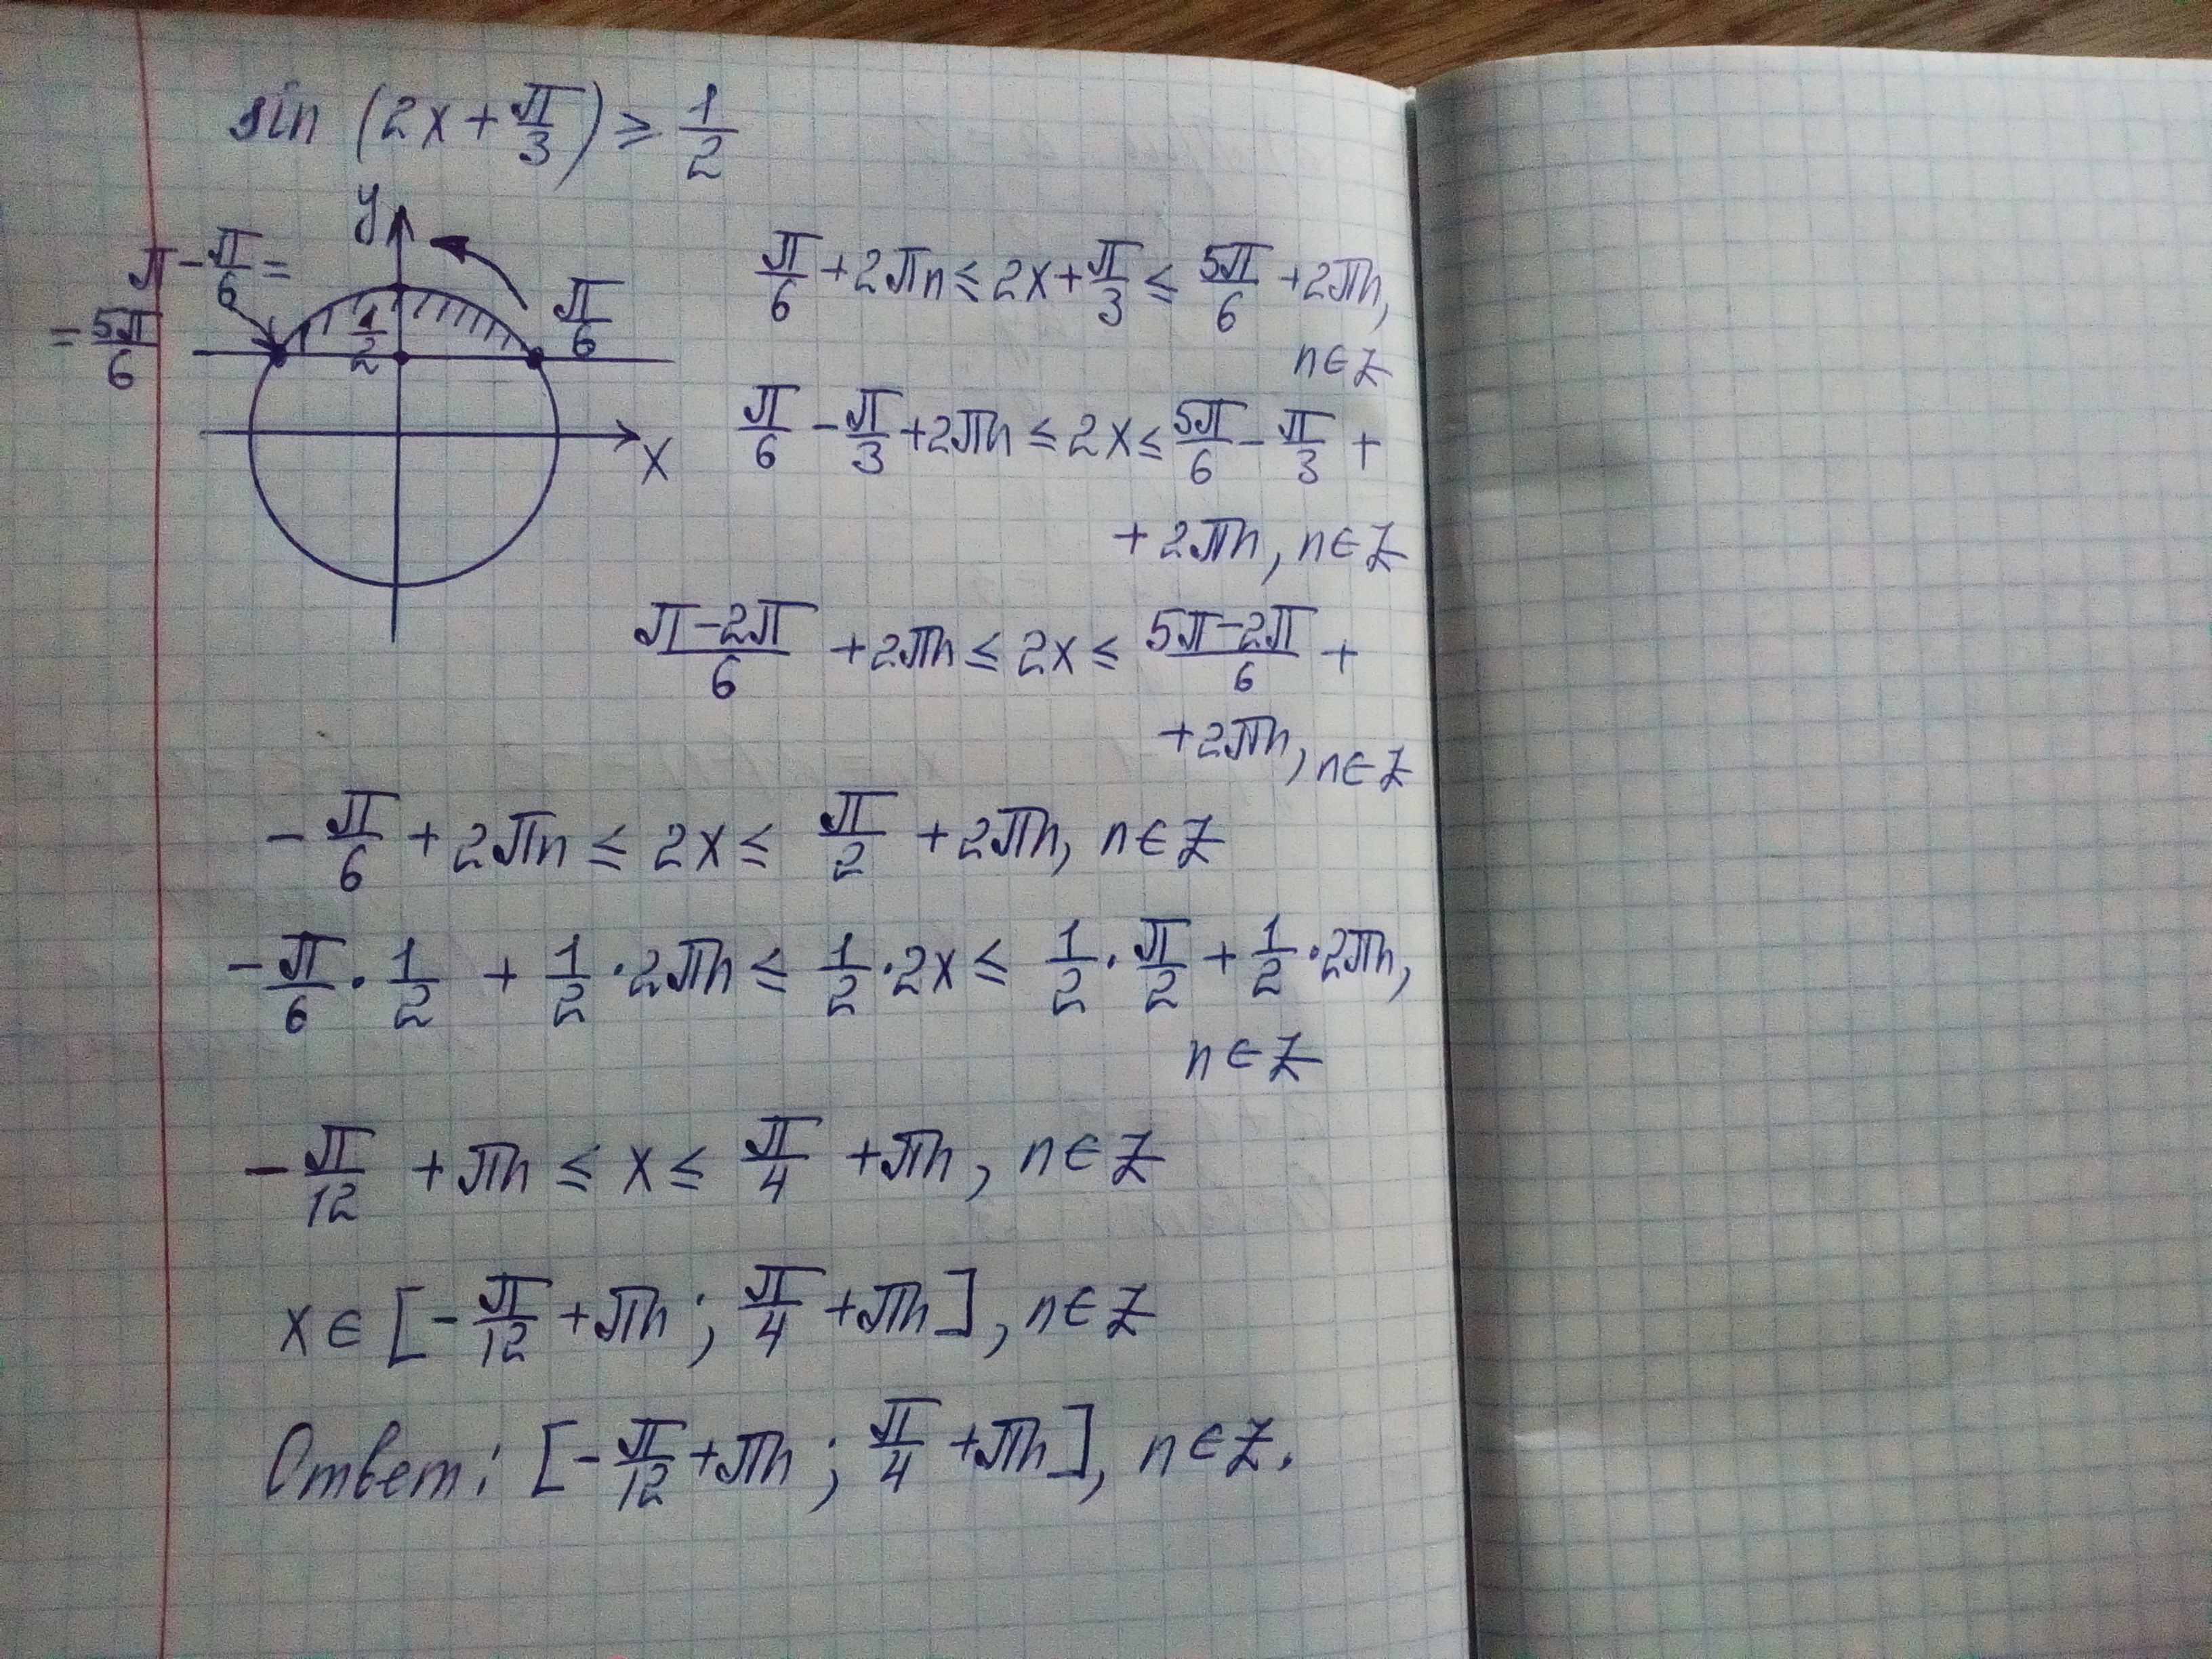 sin (2x + π/3) ≥ 1/2
y
π - π/6 =
= 5π/6
1/2
π/6
x
π/6 + 2πn ≤ 2x + π/3 ≤ 5π/6 + 2πn,
n ∈ Z
π/6 - π/3 + 2πn ≤ 2x ≤ 5π/6 - π/3 +
+ 2πn, n ∈ Z
(π-2π)/6 + 2πn ≤ 2x ≤ (5π-2π)/6 +
+ 2πn, n ∈ Z
- π/6 + 2πn ≤ 2x ≤ π/2 + 2πn, n ∈ Z
- π/6 · 1/2 + 1/2 · 2πn ≤ 1/2 · 2x ≤ 1/2 · π/2 + 1/2 · 2πn,
n ∈ Z
- π/12 + πn ≤ x ≤ π/4 + πn, n ∈ Z
x ∈ [- π/12 + πn ; π/4 + πn], n ∈ Z
Ответ: [- π/12 + πn ; π/4 + πn], n ∈ Z.